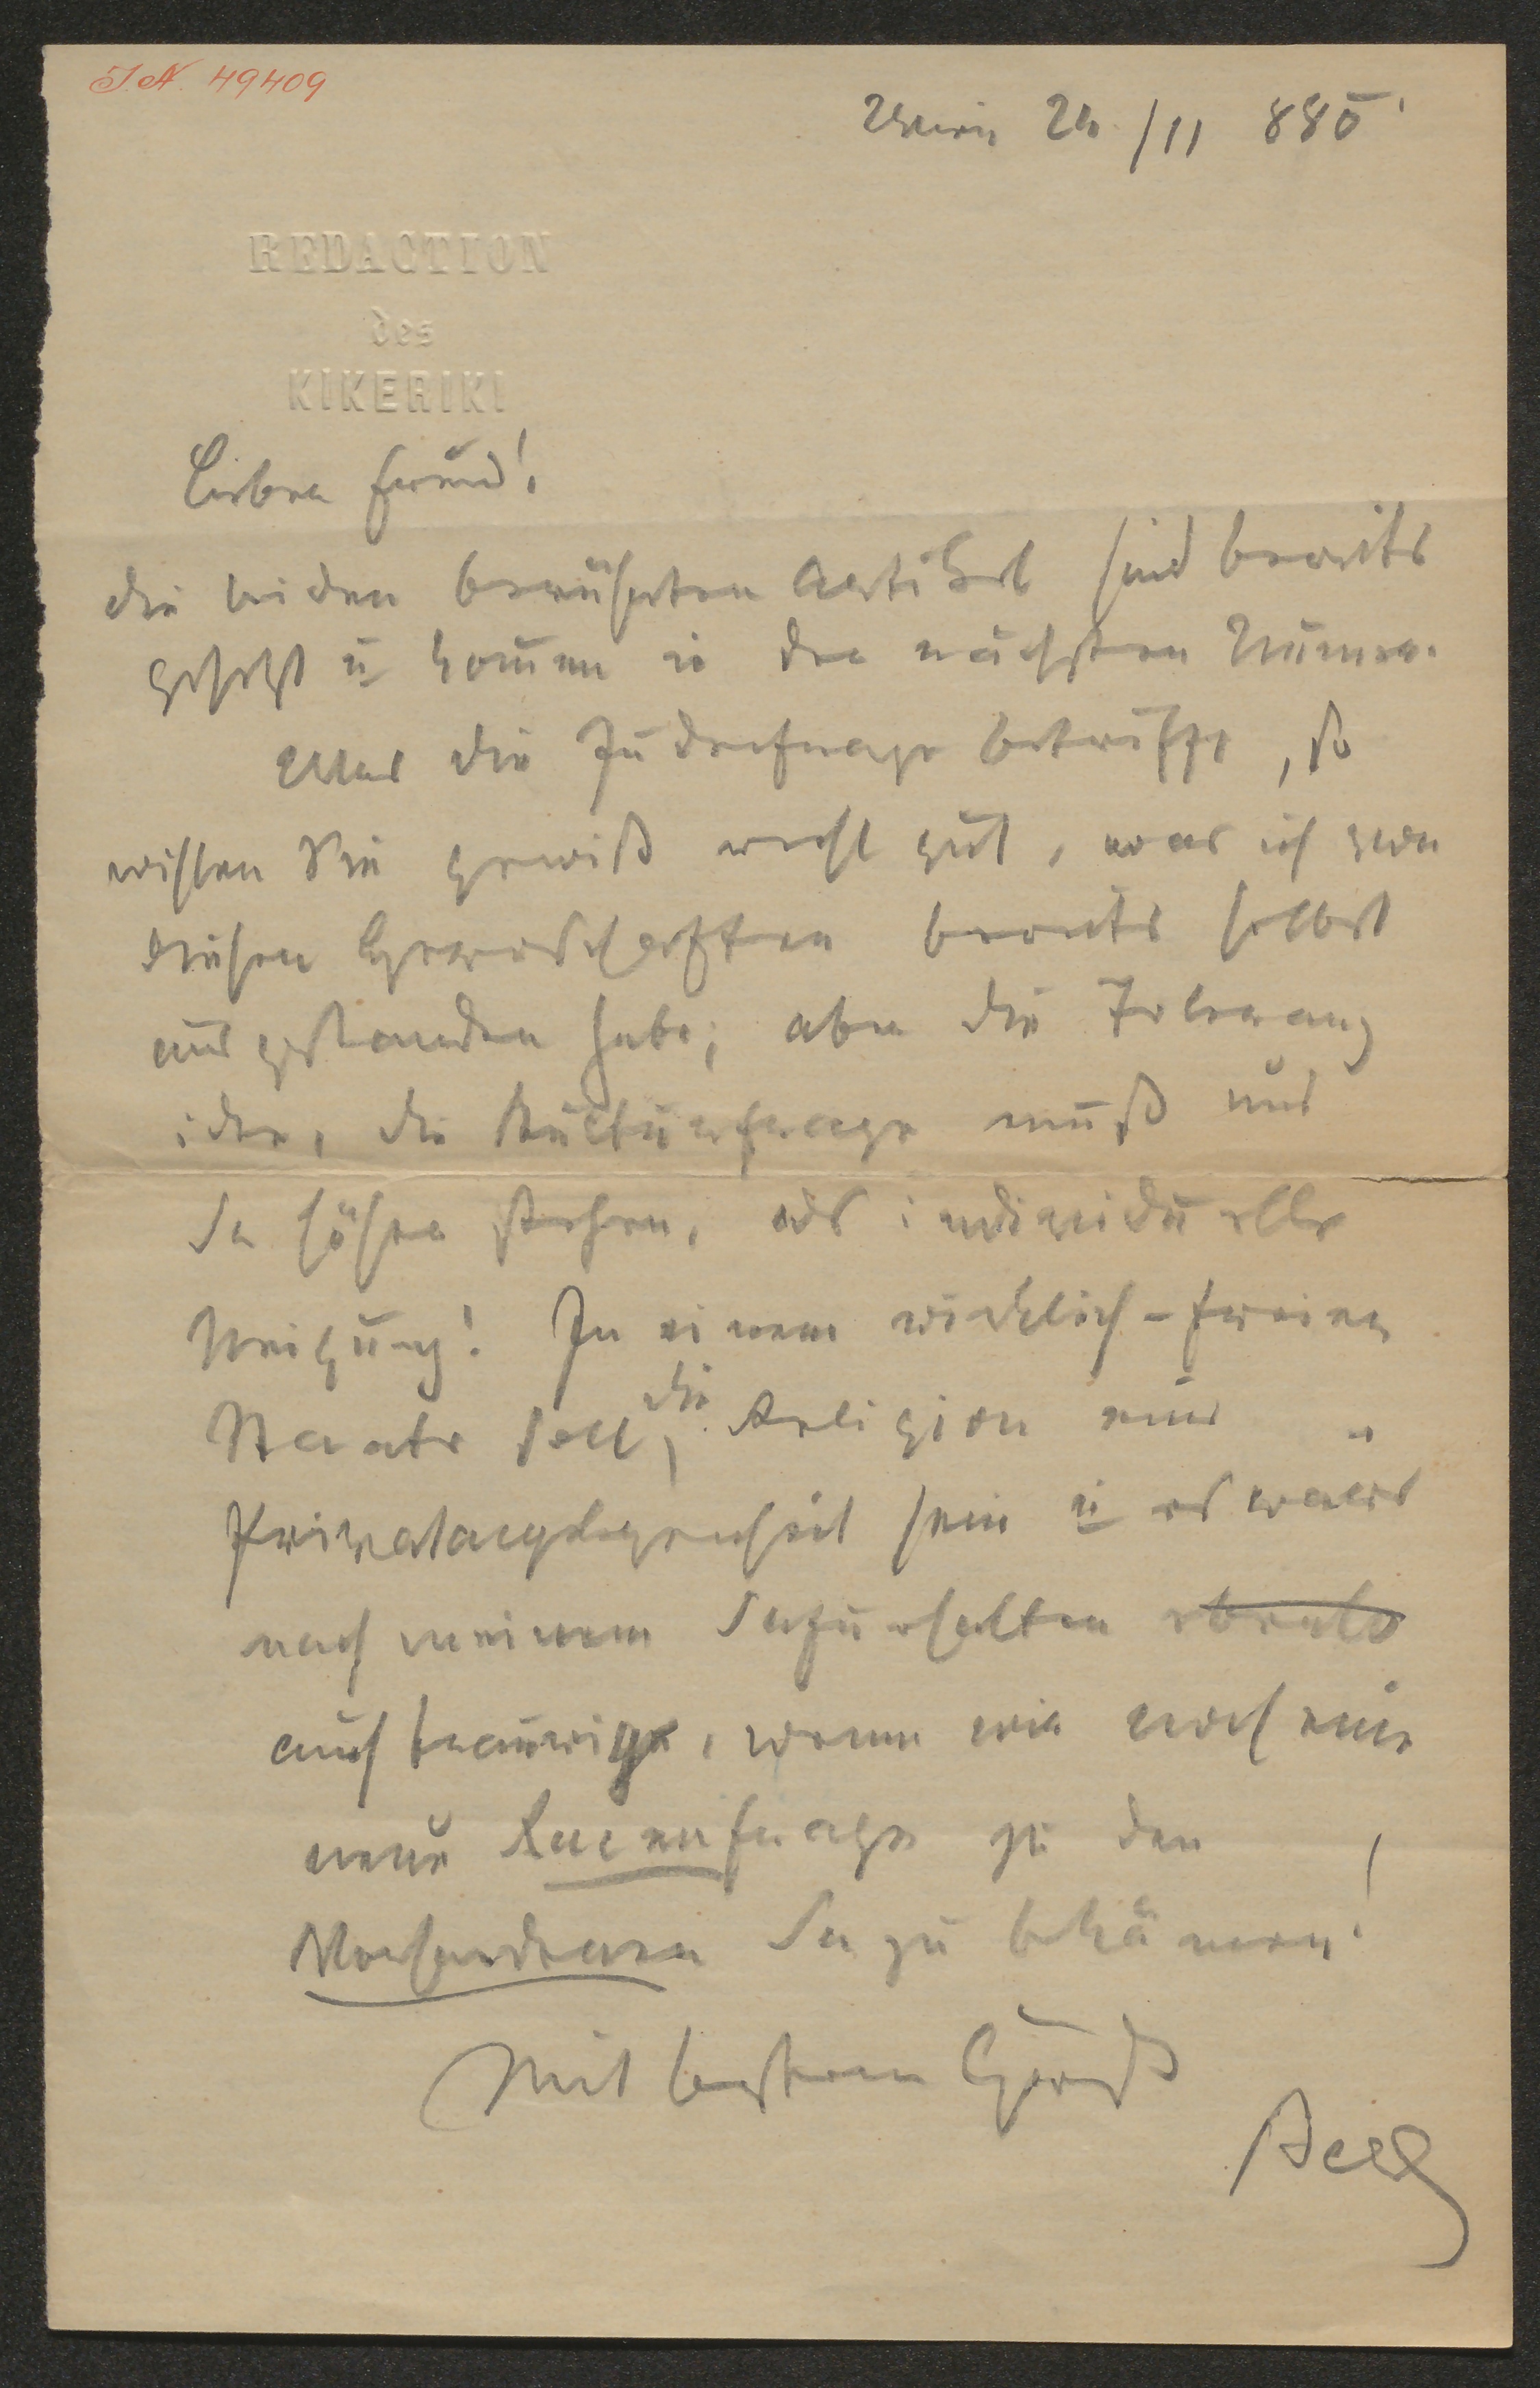 I.N. 49409
Wien 24/11 885
REDACTION
des
KIKERIKI
Lieber Freund!
die beiden berührten Artikel sind bereits
gesetzt u kom̄en in der nächsten Num̄er.
Was die Judenfrage betrifft, so
wissen Sie gewiß recht gut, was ich von
diesen Herrschaften bereits selbst
ausgestanden habe; aber die Toleranz
idee, die Kulturfrage muß uns
da höher stehen, als individuelle
Neigung! In einem wirklich-freien
Staate soll die Religion nur
Privatangelegenheit sein u es wäre
nach meinem Dafürhalten
auch traurig, wenn wir noch eine
neue Racenfrage zu den
Vorhandenen dazu bekämen!
Mit bestem Gruß
Berg